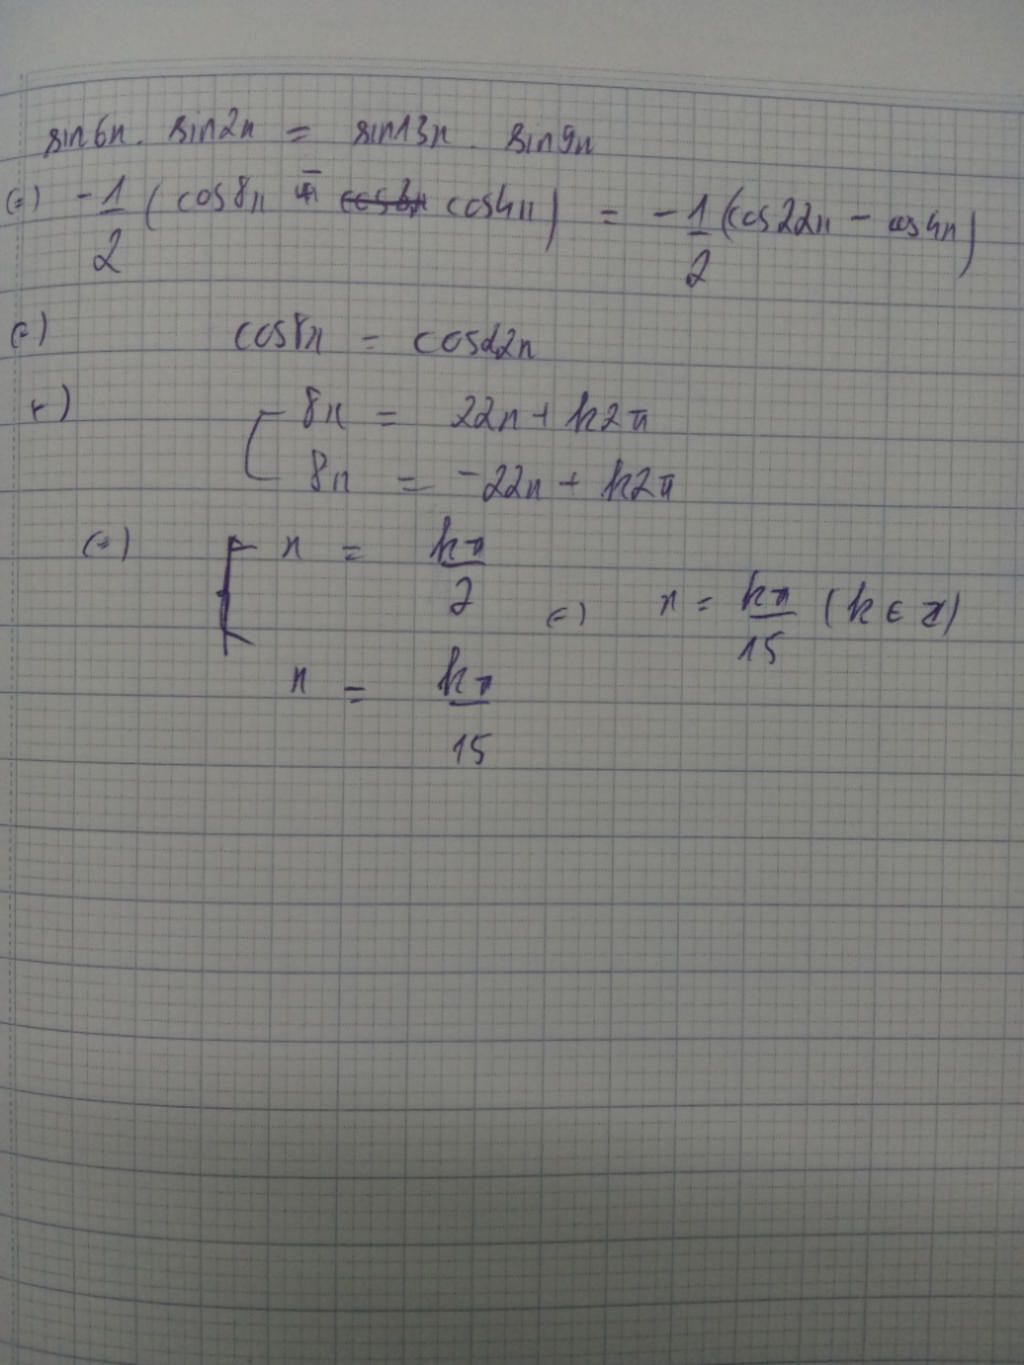 sin6x . sin2x = sin13x . sin9x
(=) -1/2 (cos8x - cos4x) = -1/2 (cos22x - cos4x)
(=) cos8x = cos22x
(=) [ 8x = 22x + k2π
8x = -22x + k2π
(=) [ x = kπ/7
x = kπ/15
(=) x = kπ/15 (k ∈ Z)